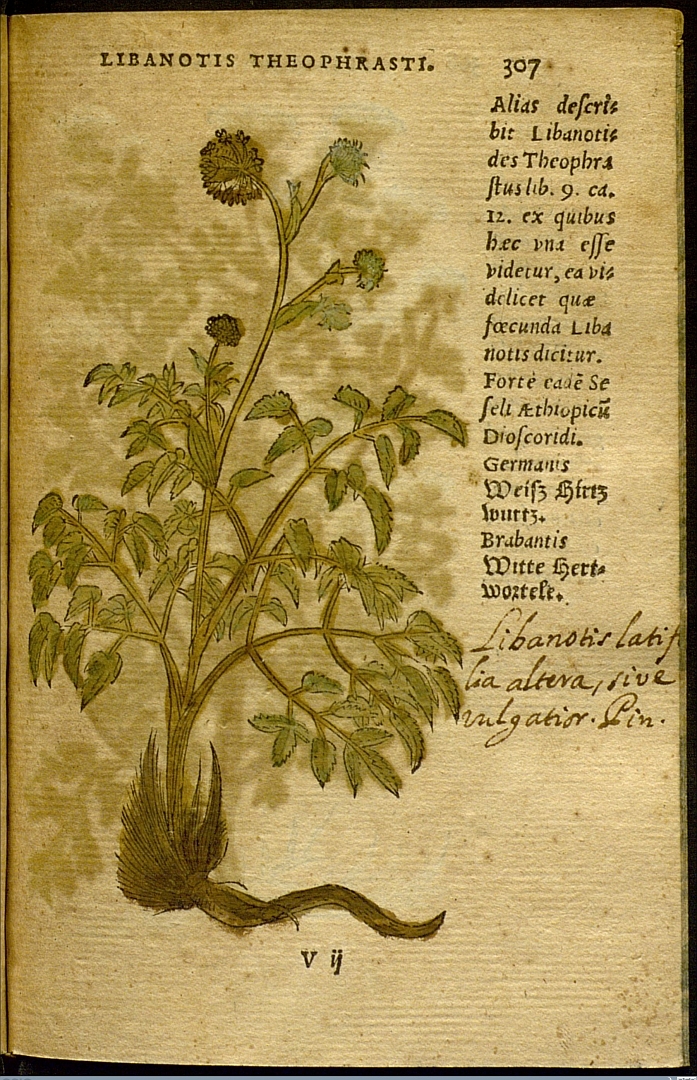 LIBANOTIS THEOPHRASTI.
307
Alias deſcri⸗
bit Libanoti⸗
des Theophra
ſtus lib. 9. ca.
12. ex quibus
hæc vna eſſe
videtur, ea vi⸗
delicet quæ
fœcunda Liba
notis dicitur.
Forte eadē Se
ſeli Æthiopicū
Dioſcoridi.
Germanis
Weiſz Hirtz
wurtz.
Brabantis
Witte Hert⸗
wortele.
Libanotis latif
lia altera, sive
vulgatior. Pin.
V ij